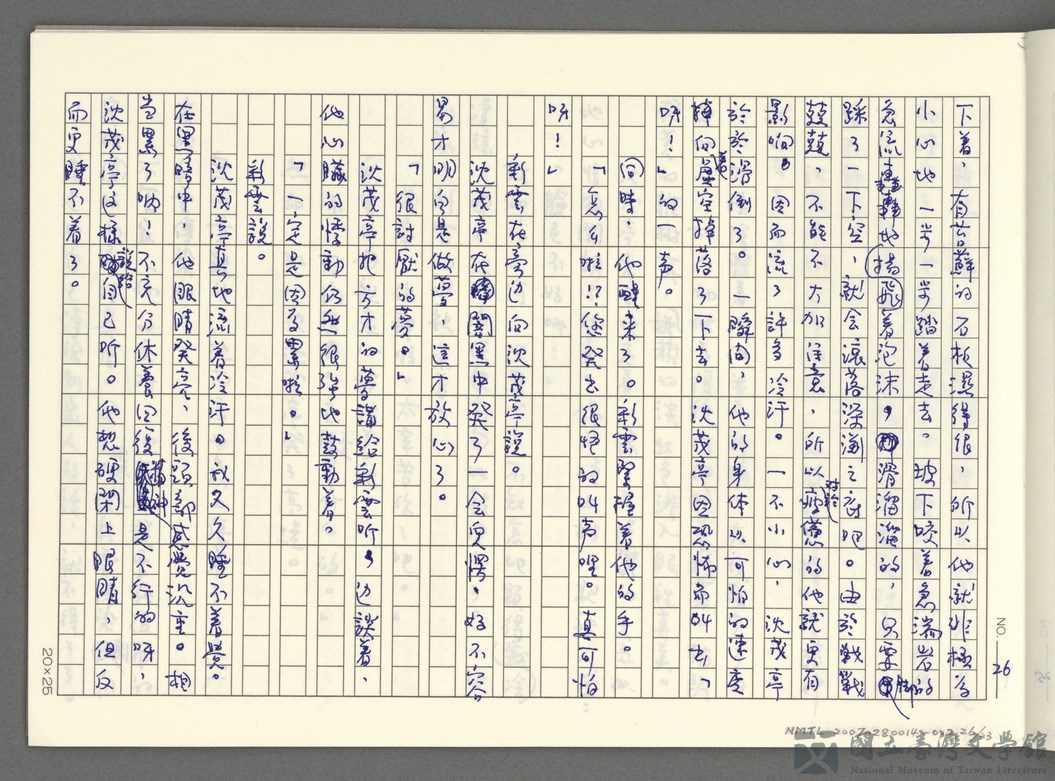 下着、有苔蘚的石板濕得很，所以他就非極為
小心地一步一步踏着走去。坡下咬着急湍岩的
急流轟轟地揚飛着泡沫，滑溜溜的，只要脚
踩了一下空，就会滾落深渊之底吧。由於戰戰
兢兢，不能不大加注意，所以对於疲憊的他就更有
影响。因而流了許多冷汗。一不小心，沈茂亭
終於滑倒了。一瞬间，他的身体以可怕的速度
掉向虛空掉落了下去。沈茂亭因恐怖而叫出「
呀！」的一声。
同時，他醒来了。彩雲緊握着他的手。
「怎么啦!?您発出很怪的叫声哩。真可怕
呀！」
彩雲在旁边向沈茂亭說。
沈茂亭在闇黑中発了一会兒愣。好不容
易才明白是做夢，這才放心了。
「很討厭的夢。」
沈茂亭把方才的夢講給彩雲听。边談着，
他心臟的悸動仍然很強地鼓動着。
「一定是因为累啦。」
彩雲說。
沈茂亭真地流着冷汗。就久久睡不着覺。
在黑暗中，他眼睛発亮，後頭部感覺沉重。相
当累了吶！不充分休養回復精神是不行的呀，
沈茂亭这樣說給自己听。他想硬闔上眼睛，但反
而更睡不着了。
NO. 26
20×25
NMTL 20070280014
國立臺灣文學館
National Museum of Taiwan Literature